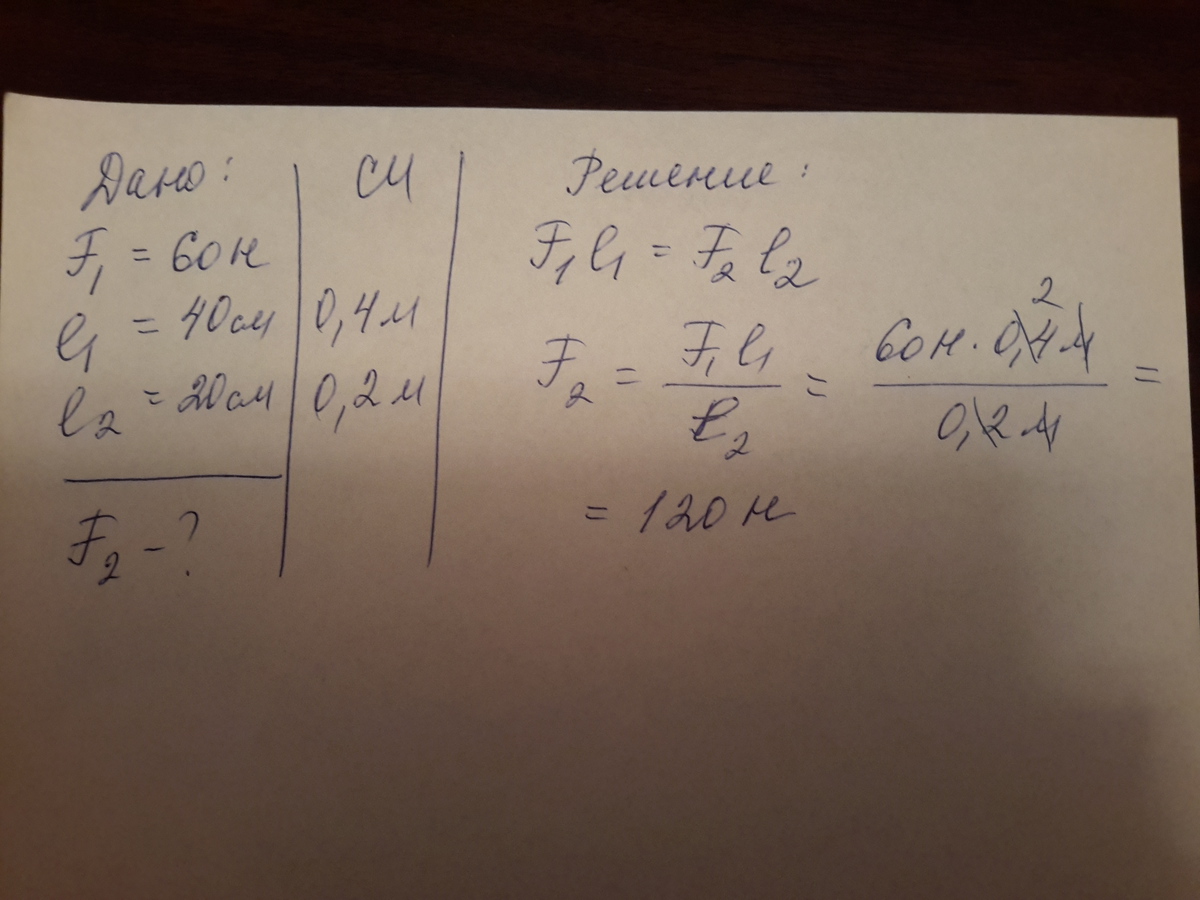 Дано:
F₁ = 60 н
l₁ = 40 см
l₂ = 20 см
F₂ - ?
СИ
0,4 м
0,2 м
Решение:
F₁ l₁ = F₂ l₂
F₂ = F₁ l₁ / l₂ = 60 н · 0,4 м / 0,2 м =
2
= 120 н